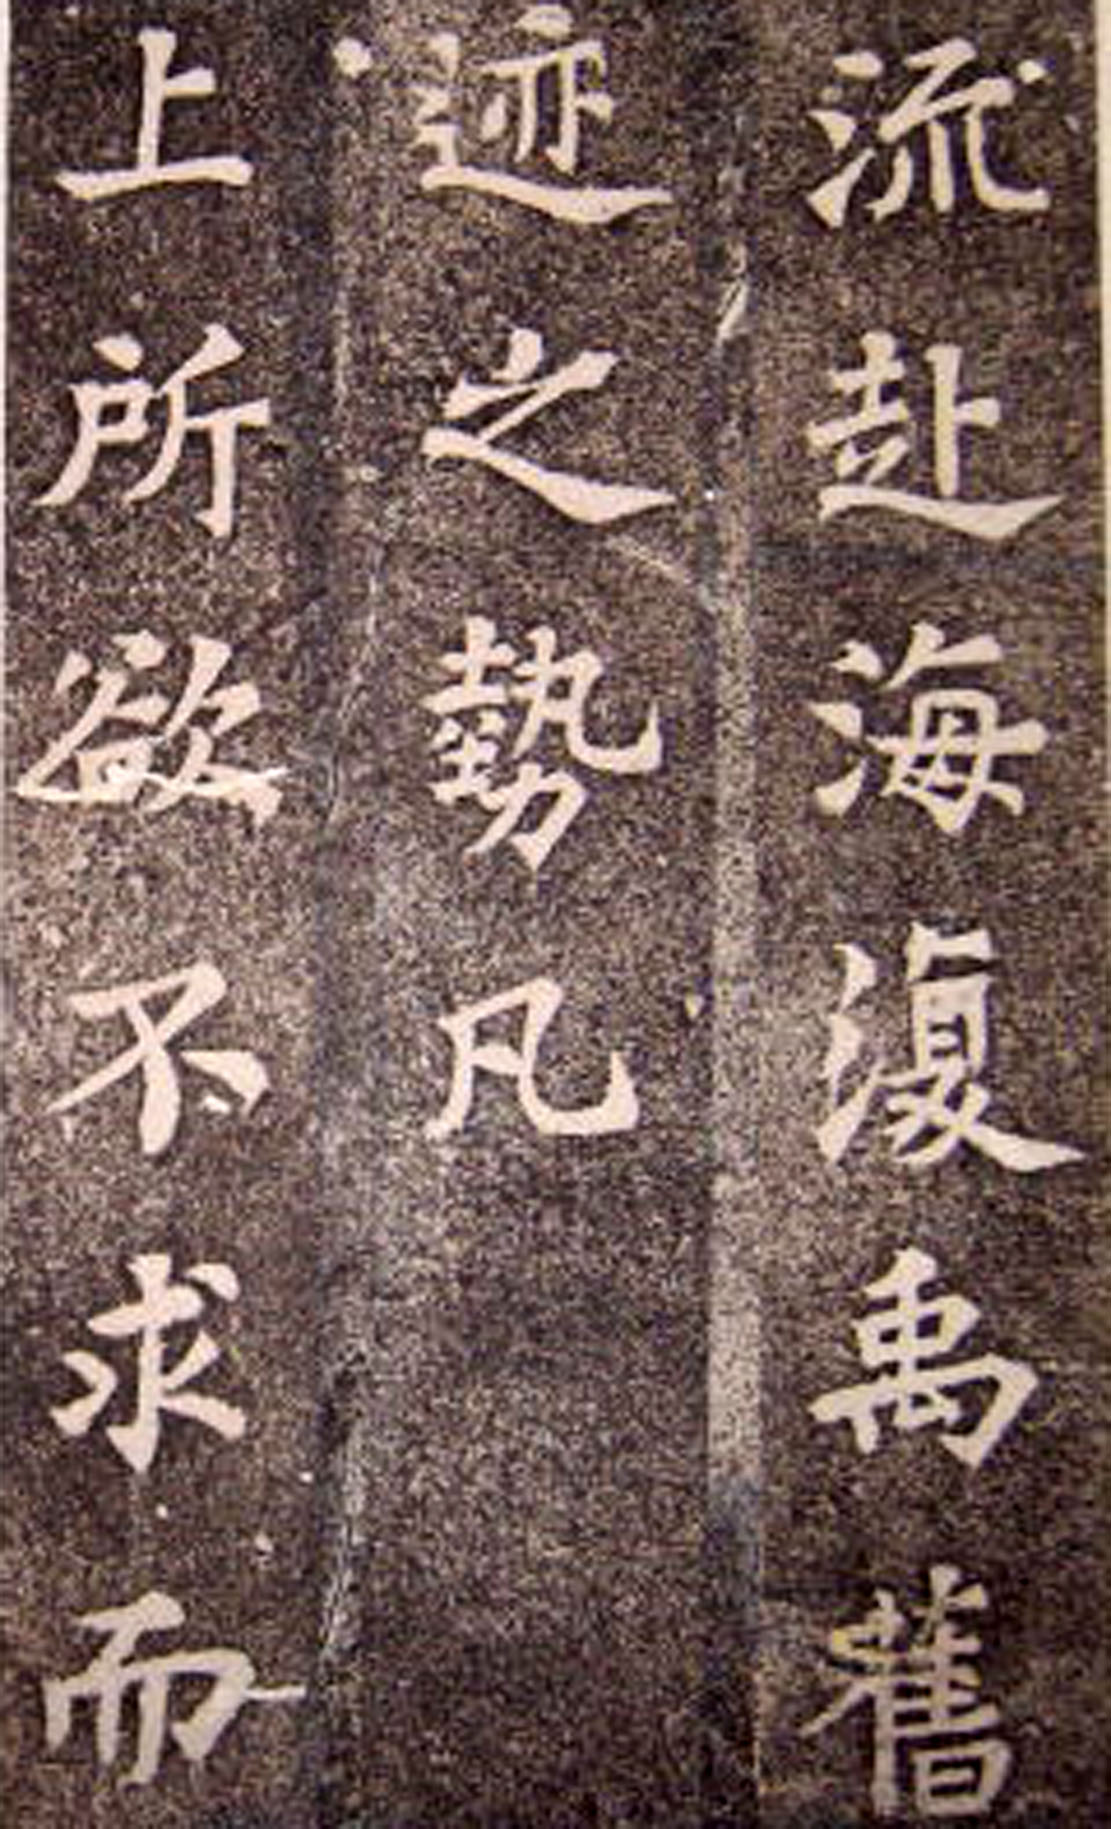 流赴海復禹舊
迹之勢凡
上所欲不求而